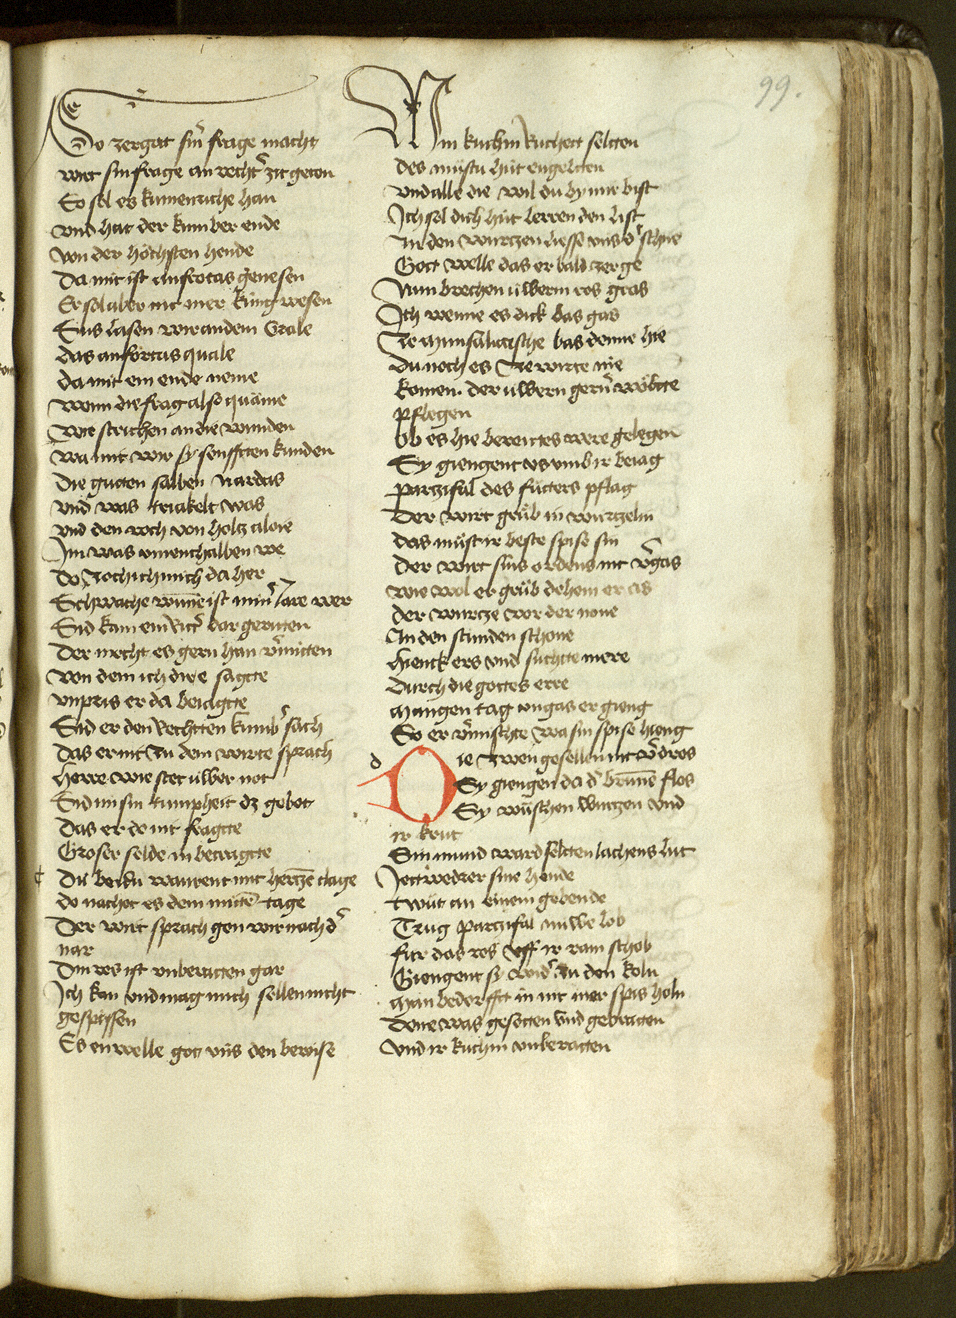 99.
So zergat sin̄ frage macht
wirt sin frage an recht̄ zit geton
So sol es kunicriche han
vnd hat der kumber ende
von der höchsten hende
Da mit ist anfortas genesen
Er sol aber nit mer küng wesen
Sus lasen wir an dem Grale
das anfortas quale
da mit ein ende neme
wenn die frag also quäme
wir strichen an die wunden
wa mit wir sy senfften kunden
Die guten salben Nardas
vnd was triakelt was
vnd den roch von holtz aloie
Im was vnnenthalben we
do zoch ich mich da her
Schwache wūne ist min̄ Jare wer
Sid kam ein Ritt̄ dar geritten
Der mecht es gern han v̄mitten
von dem ich dir e sagte
vnpris er da beiagte
Sid er den Rechtten kumb̄ sach
Das er nit zu dem wirte sprach
Herre wie stet üwer not
Sid im sin tumpheit dz gebot
Das er do nit fragte
Groser selde in betragte
Di beidu warent mit hertzē clage
do nachet es dem mittē tage
Der wirt sprach gen wir nach d̄
nar
Din ros ist vnberatten gar
Ich kan vnd mag mich sellen nicht
gespissen
Es en welle got vns den bewise
Min kuchin Ruchett seltten
des mustu hüt engeltten
vnd alle die wil du by mir bist
Ich sol dich hüt lerren den list
In den wurtzen liesse vns d̄ schne
Gott welle das er bald zerge
Nun brechen üwerm ros gras
Ich wenne es dick bas gas
Ze munsaluatsche bas denne hie
du noch es Ze wirte nie
komen. der üwern gern̄ wölte
pflegen
Ob es hie bereittes were gelegen
Sy giengent vs vmb ir beiag
Parzifal des fütters pflag
Der wirt grüb in wurtzeln
das müst ir beste spise sin
Der wirt sins ordens nit v̄gas
wie wol er grüb dehein er as
der wurtze vor der none
An den stunden schone
hienck ers vnd suchtte mere
durch die gottes erre
mangen tag vngas er gieng
So er v̄mischte wa sin spise hieng
d Die zwen gesellen nit v̄dros
Sy giengen da d̄ brunē flos
Sy wūschen wurtzen vnd
ir krut
Sin mund ward seltten lachens lut
Jettwedrer sine hende
twüt an einem gebende
Trug parzifal niwe lob
für das ros vff ir ram schob
Giengent sy wid̄ zu den koln
man bedorfft in nit mer spis holn
Dene was gesotten vnd gebratten
vnd ir kuchin vnberatten